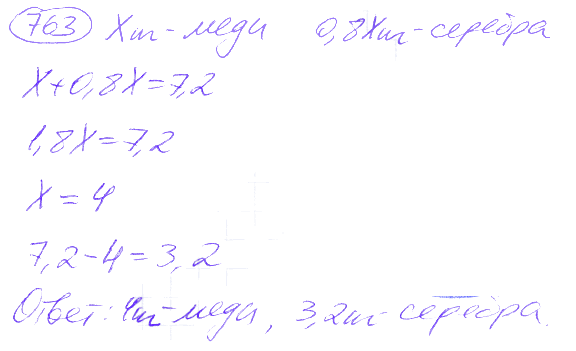 763 Xт-меди 0,8Xт-серебра
X+0,8X=7,2
1,8X=7,2
X=4
7,2-4=3,2
Ответ: 4т-меди, 3,2т-серебра.